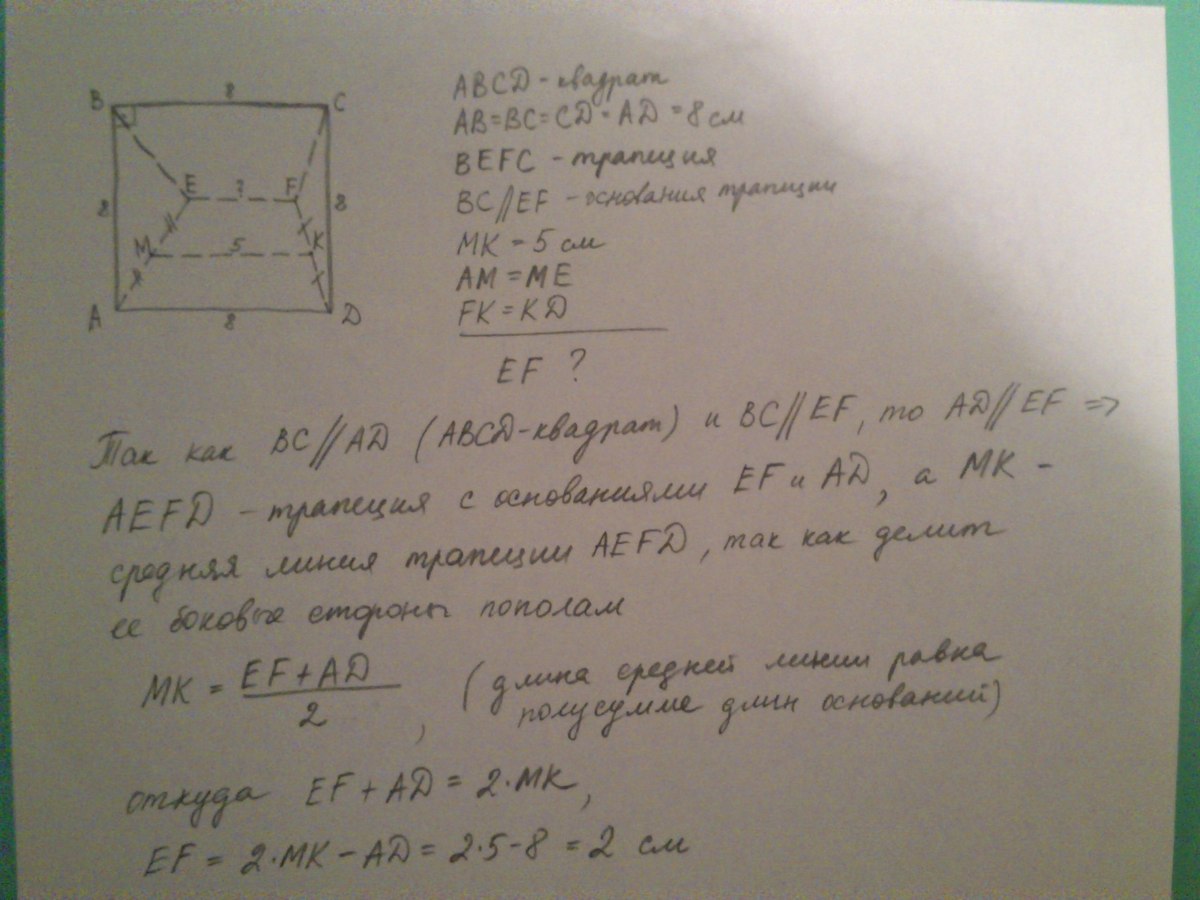 8
B
C
ABCD - квадрат
AB=BC=CD=AD=8 см
BEFC - трапеция
E
?
F
8
8
BC//EF - основания трапеции
M
5
K
MK = 5 см
AM = ME
FK = KD
A
8
D
EF ?
Так как BC//AD (ABCD-квадрат) и BC//EF, то AD//EF =>
AEFD - трапеция с основаниями EF и AD, а MK -
средняя линия трапеции AEFD, так как делит
ее боковые стороны пополам
MK = EF+AD / 2 , (длина средней линии равна
полусумме длин оснований)
откуда EF+AD = 2·MK,
EF = 2·MK-AD = 2·5-8 = 2 см